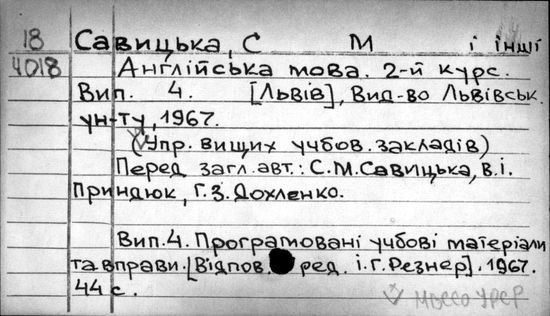 18 Савицька, С М і інші
4018 Англійська мова. 2-й курс.
Вип. 4. [Львів], Вид-во Львівськ.
ун-ту, 1967.
(Упр. вищих учбов. закладів)
Перед загл. авт.: С.М. Савицька, В.І.
Приндюк, Г.З. Дохленко.
Вип. 4. Програмовані учбові матеріали
та вправи. [Відпов. ред. І.Г. Резнер]. 1967.
44 с.
МВССО УРСР